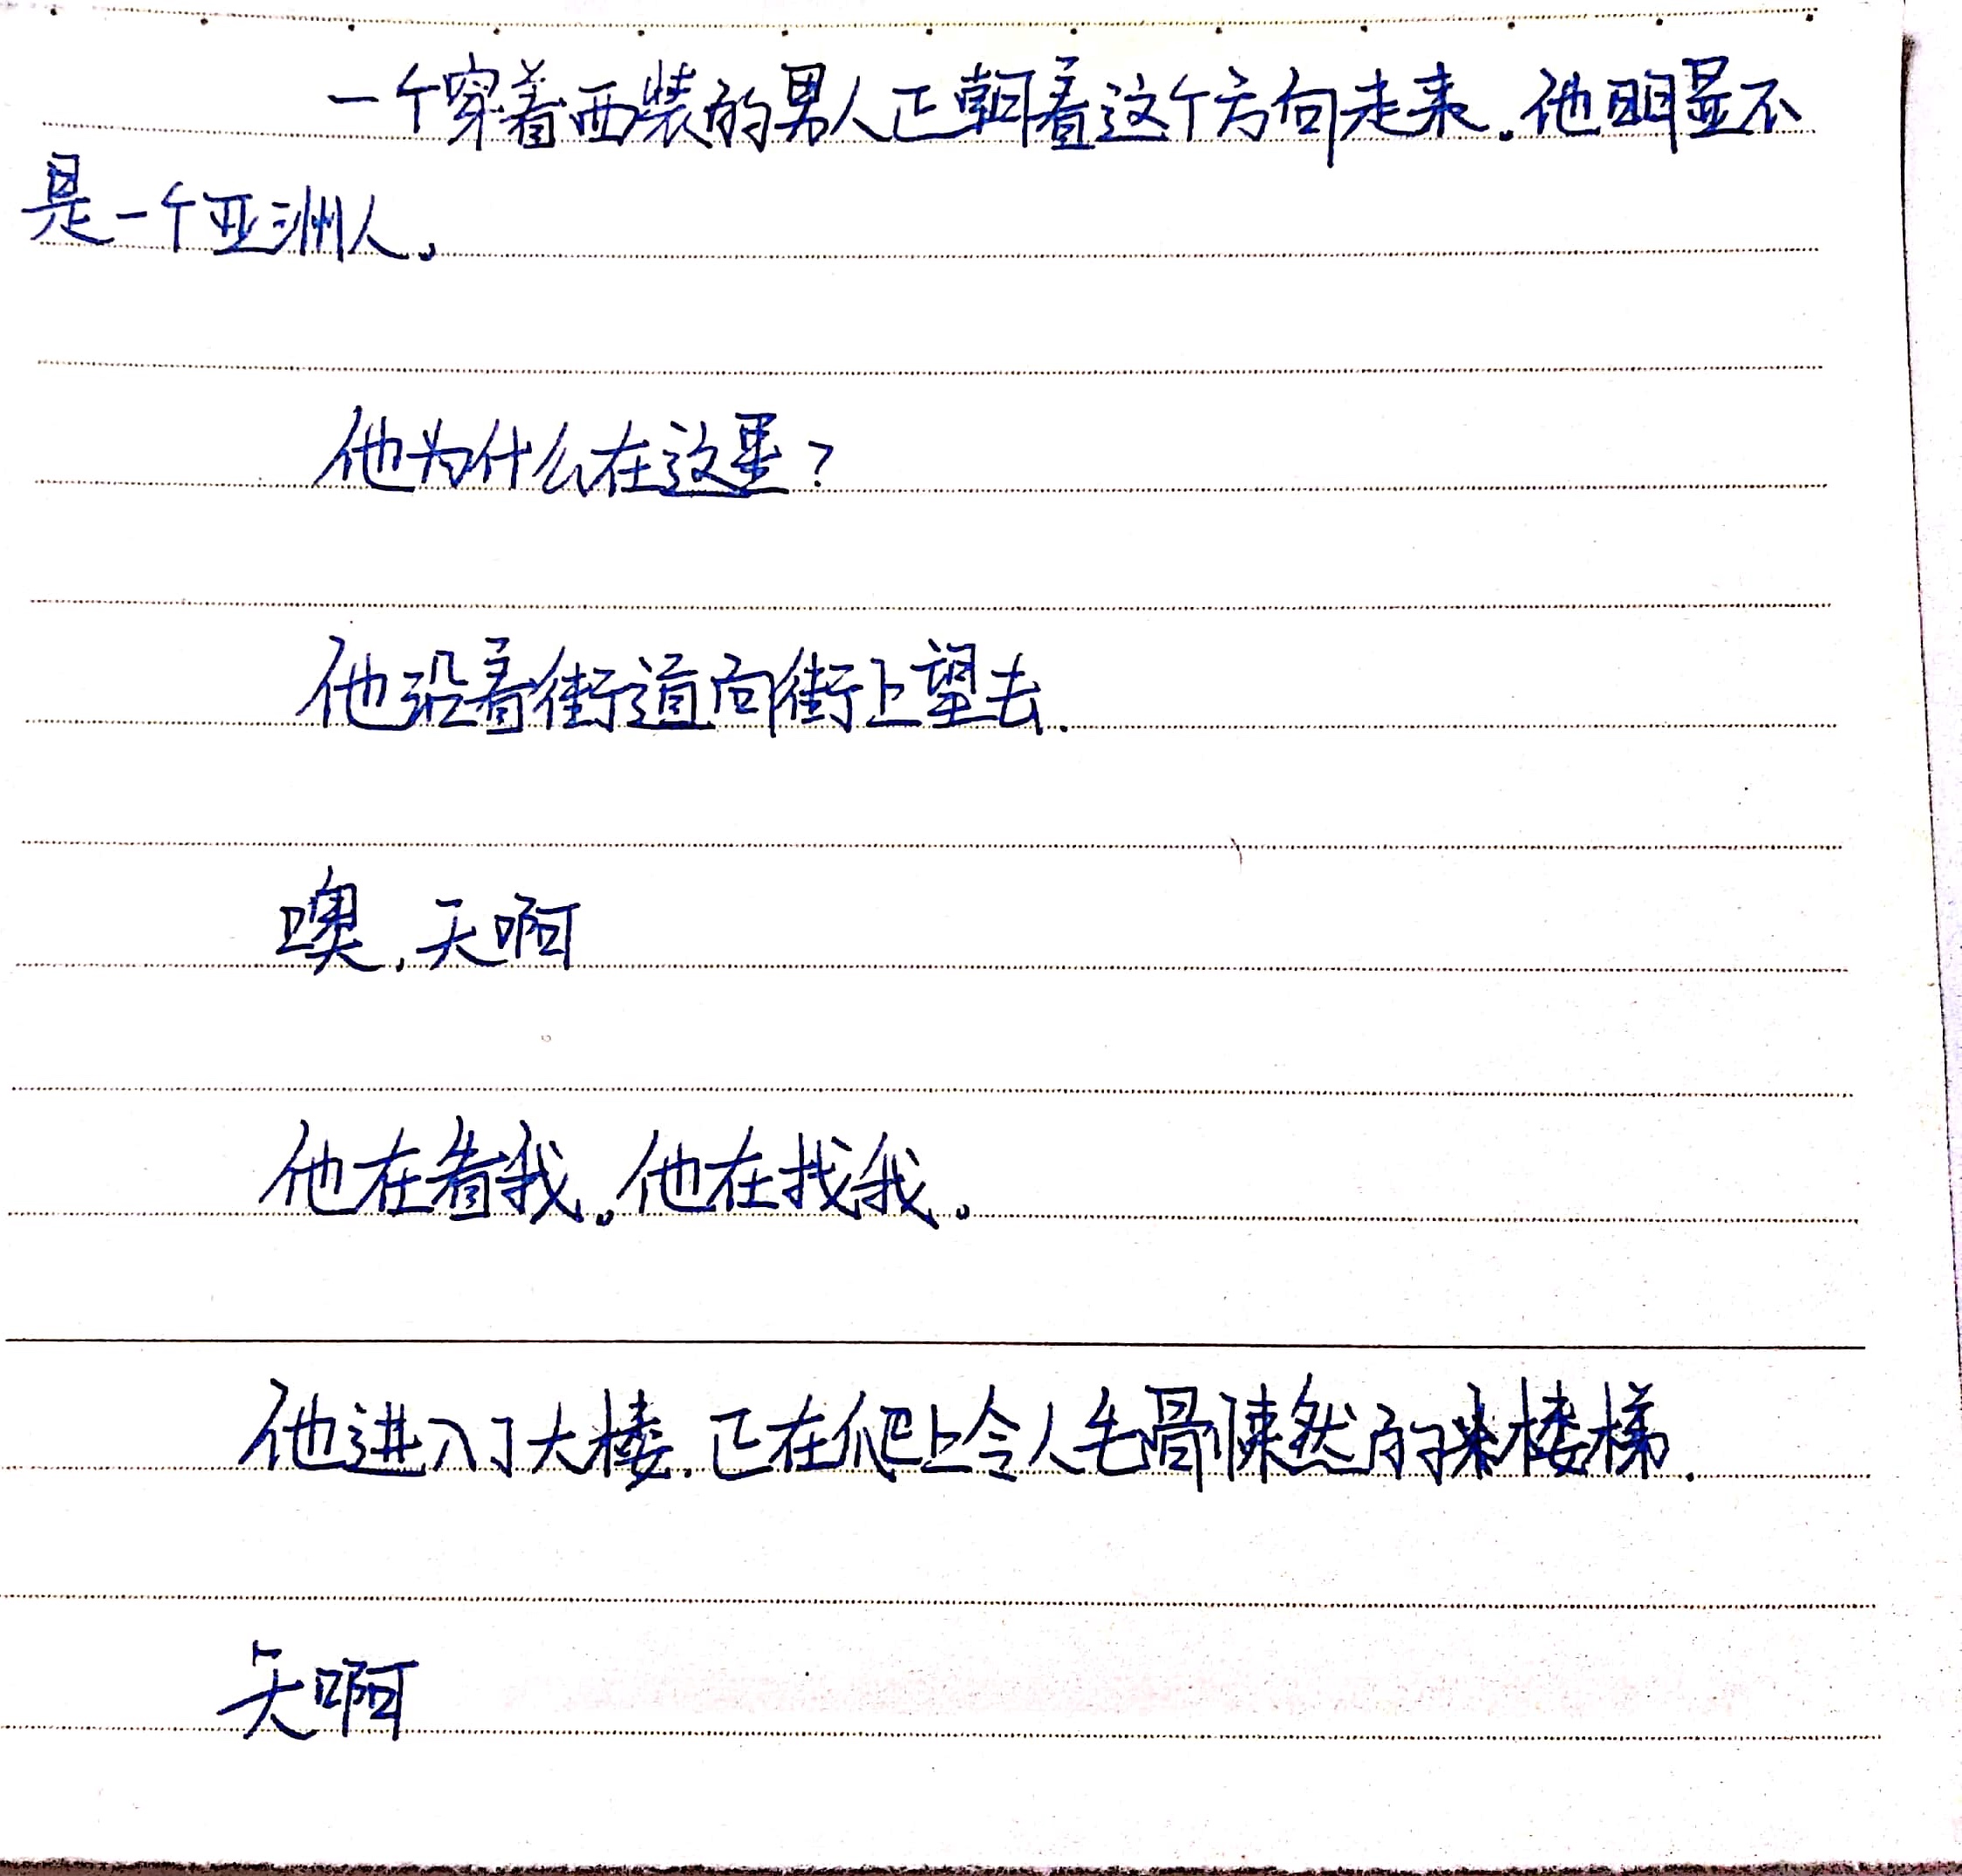 一个穿着西装的男人正朝着这个方向走来。他明显不
是一个亚洲人。
他为什么在这里？
他沿着街道向街上望去.
噢,天啊
他在看我。他在找我。
他进入了大楼.正在爬上令人毛骨悚然的楼梯.
天啊